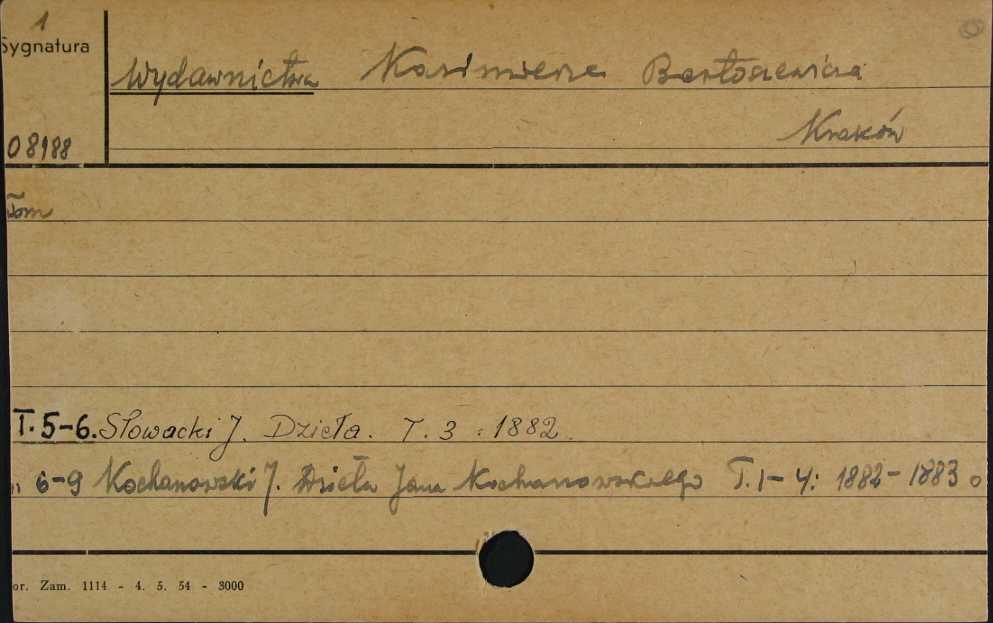 1
Sygnatura
Wydawnictwa Kazimierza Bartoszewicza
Kraków
08188
Tom
T. 5-6. Słowacki J. Dzieła. T. 3 : 1882.
" 6-9 Kochanowski J. Dzieła Jana Kochanowskiego T. 1-4: 1882-1883
or. Zam. 1114 - 4. 5. 54 - 3000